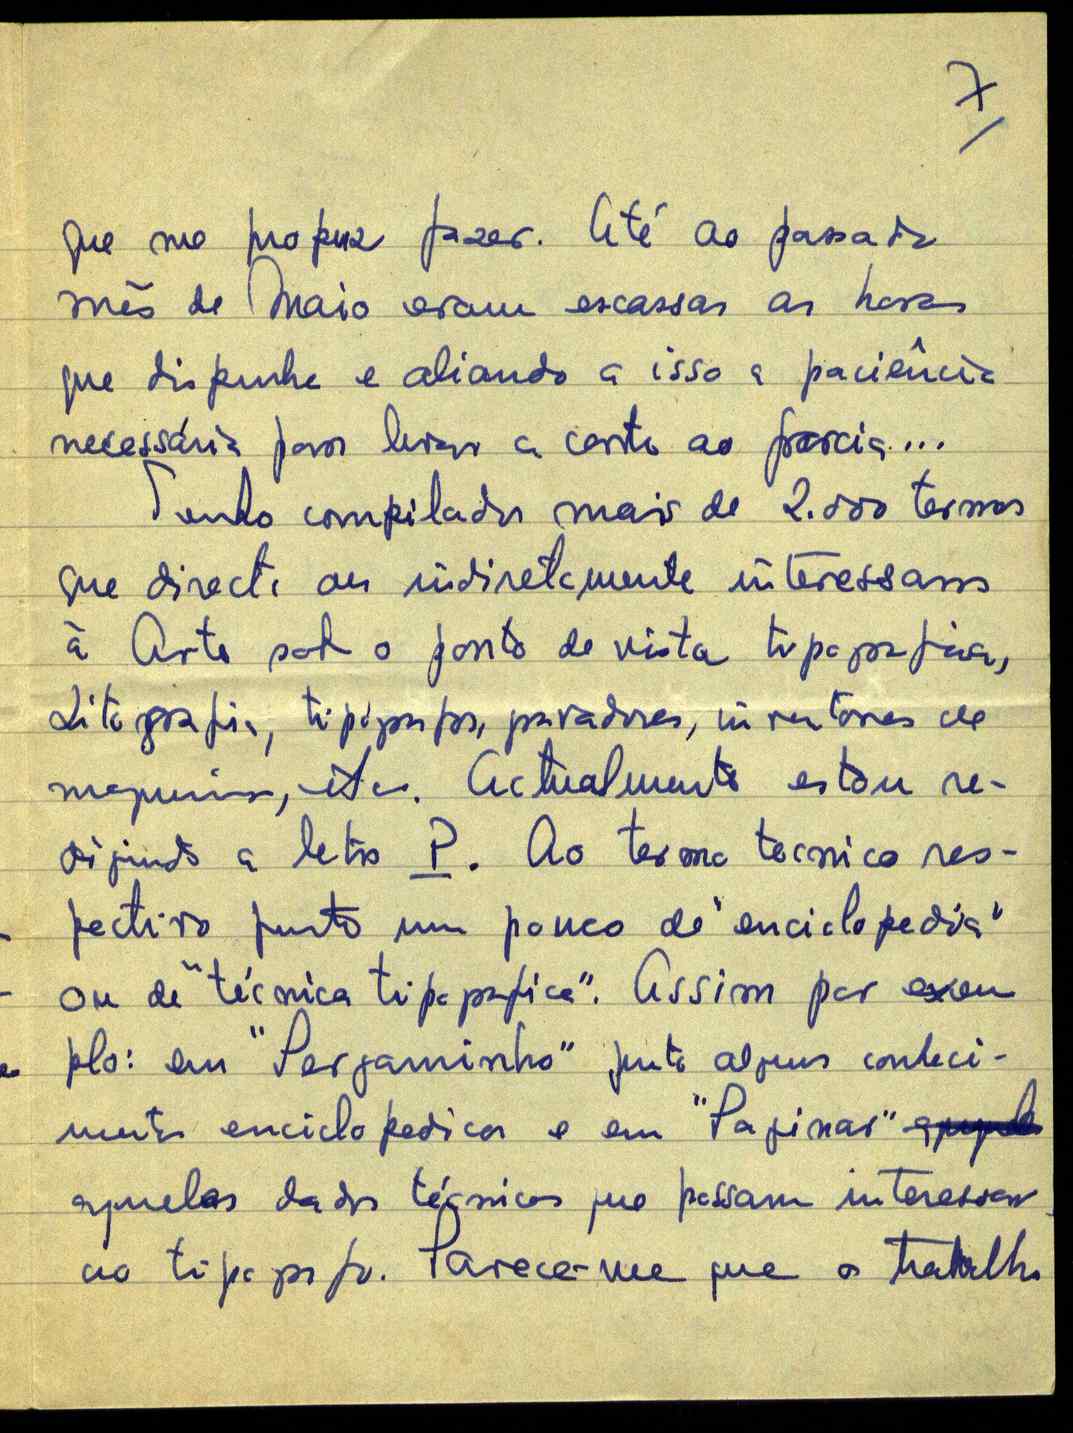 7
que me propuz fazer. Até ao passado
mês de Maio eram escassas as horas
que dispunha e aliando a isso a paciência
necessária para levar a cabo ao
Tenho compilados mais de 2.000 termos
que directa ou indiretamente interessam
à Arte sob o ponto de vista tipografico,
Litografia, tipógrafos, gravadores, inventores de
maquinas, etc. Actualmente estou re-
digindo a letra P. Ao termo tecnico res-
pectivo junto um pouco de "enciclopedia"
ou de "técnica tipografica". Assim por exem
plo: em "Pergaminho" junto alguns conheci-
mentos enciclopedicos e em "Paginar"
aqueles dados técnicos que possam interessar
ao tipografo. Parece-me que o trabalho